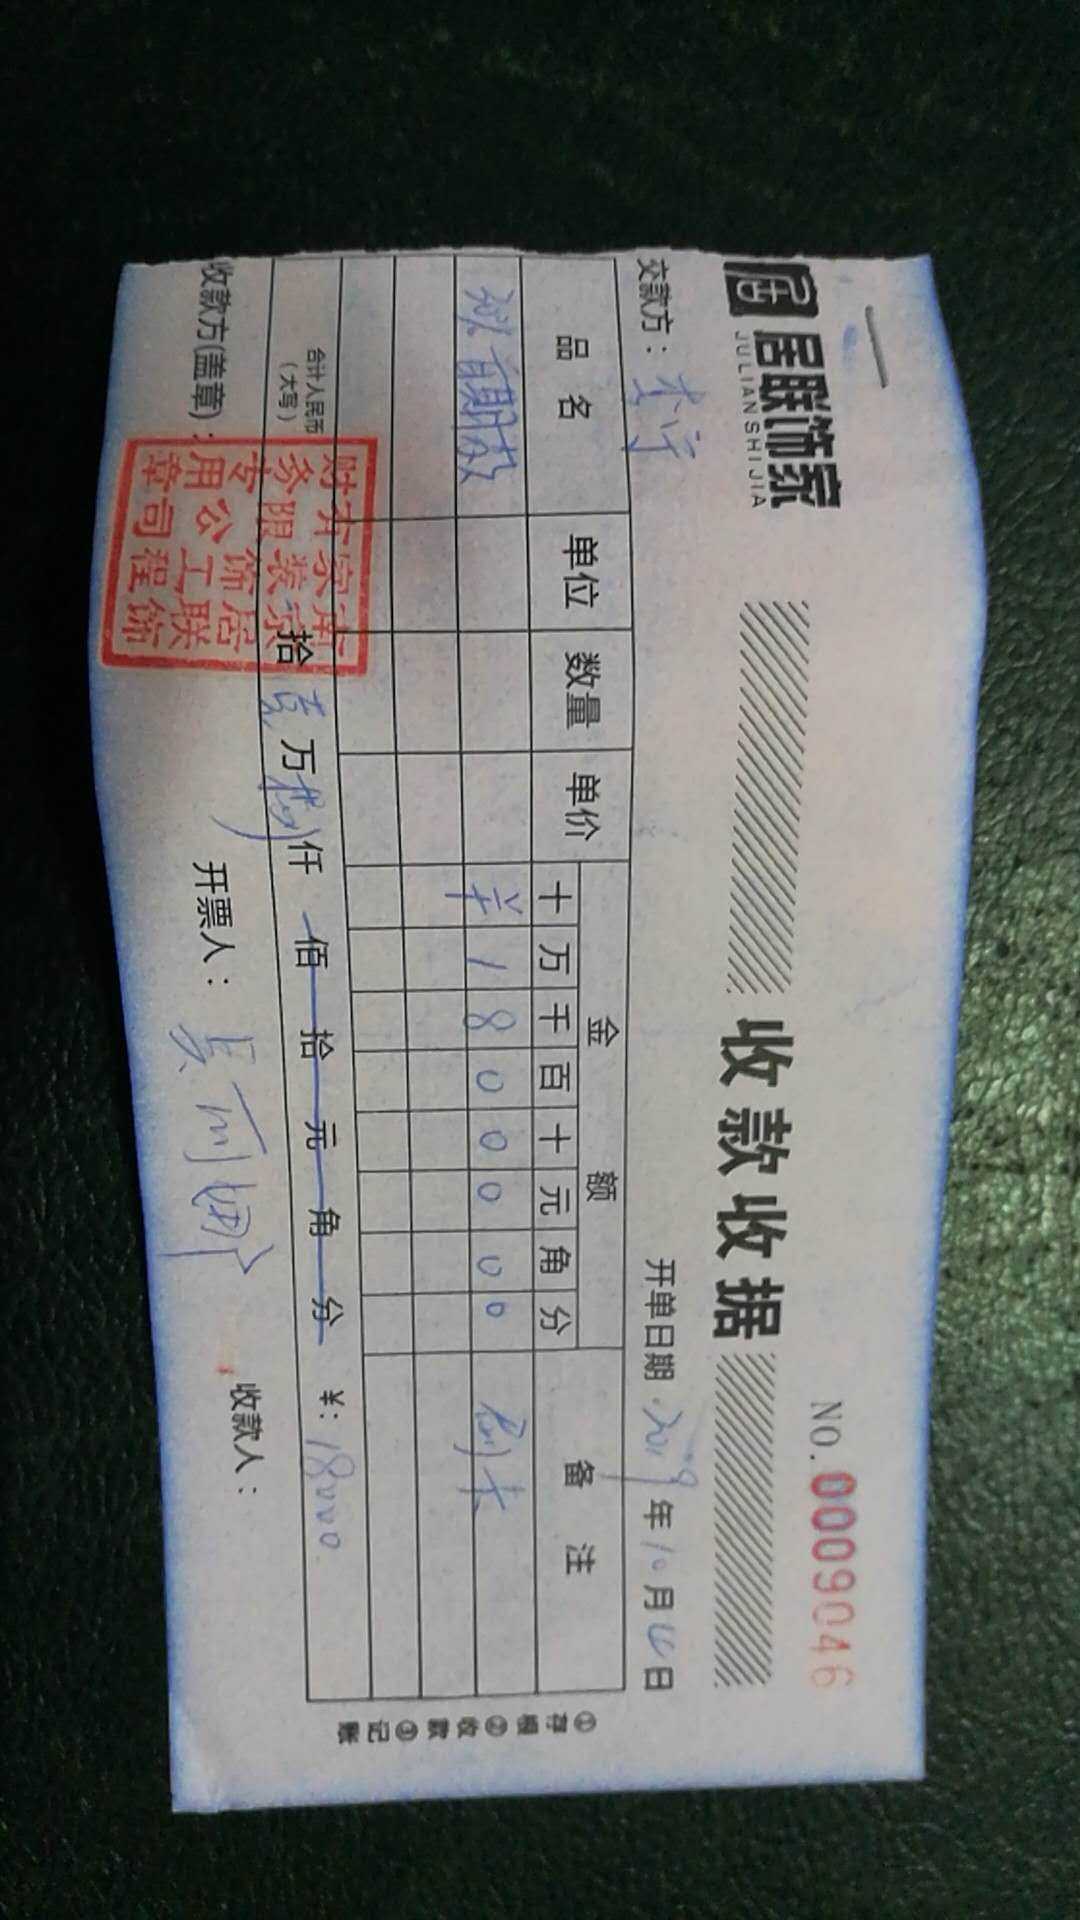 居联饰家
JULIANSHIJIA
收款收据
NO. 0009046
交款方: 李宁
开单日期 2019年10月 日
品名 单位 数量 单价 金额 备注
十 万 千 百 十 元 角 分
首期款 ¥ 1 8 0 0 0 0 0 刷卡
合计人民币
(大写) 拾 壹 万 捌 仟 佰 拾 元 角 分 ¥: 18000
收款方(盖章): 开票人: 收款人:
南京居联饰家装饰工程有限公司财务专用章
①存根②收款③记账